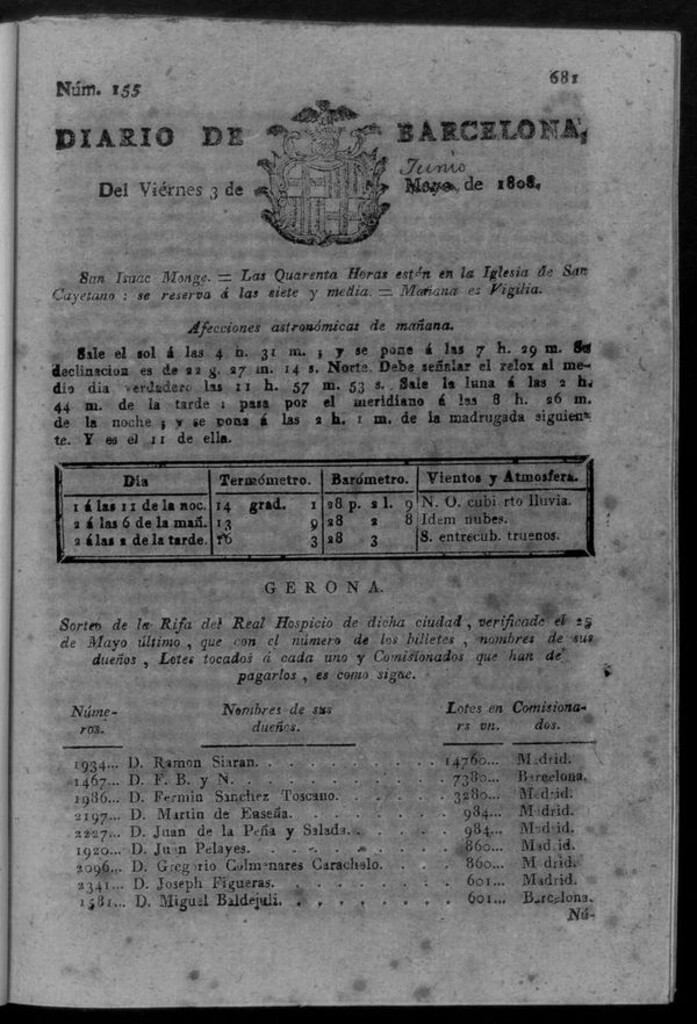 Núm. 155
681
DIARIO DE BARCELONA,
Del Viérnes 3 de Mayo, de 1808.
Junio
San Isaac Monge. = Las Quarenta Horas están en la Iglesia de San
Cayetano : se reserva á las siete y media. = Mañana es Vigilia.
Afecciones astronómicas de mañana.
Sale el sol á las 4 h. 31 m. ; y se pone á las 7 h. 29 m. Su
declinacion es de 22 g. 27 m. 14 s. Norte. Debe señalar el relox al me-
dio dia verdadero las 11 h. 57 m. 53 s. Sale la luna á las 2 h.
44 m. de la tarde : pasa por el meridiano á las 8 h. 26 m.
de la noche ; y se pone á las 2 h. 1 m. de la madrugada siguien-
te. Y es el 11 de ella.
Dia Termómetro. Barómetro. Vientos y Atmosfera.
1 á las 11 de la noc. 14 grad. 1 28 p. 2 l. 9 N. O. cubierto lluvia.
2 á las 6 de la mañ. 13 9 28 2 8 Idem nubes.
2 á las 2 de la tarde. 16 3 28 3 S. entrecub. truenos.
GERONA.
Sorteo de la Rifa del Real Hospicio de dicha ciudad , verificado el 25
de Mayo último , que con el número de los billetes , nombres de sus
dueños , Lotes tocados á cada uno y Comisionados que han de
pagarlos , es como sigue.
Núme- Nombres de sus Lotes en Comisiona-
ros. dueños. rs vn. dos.
1934... D. Ramon Siaran. 14760... Madrid.
1467... D. F. B. y N. 7380... Barcelona.
1986... D. Fermin Sanchez Toscano. 3280... Madrid.
2197... D. Martin de Euseña. 984... Madrid.
2227... D. Juan de la Peña y Salada. 984... Madrid.
1920... D. Juan Pelayes. 860... Madrid.
2096... D. Gregorio Colmenares Carachelo. 860... Madrid.
2341... D. Joseph Figueras. 601... Madrid.
1581... D. Miguel Baldejuli. 601... Barcelona.
Nú-